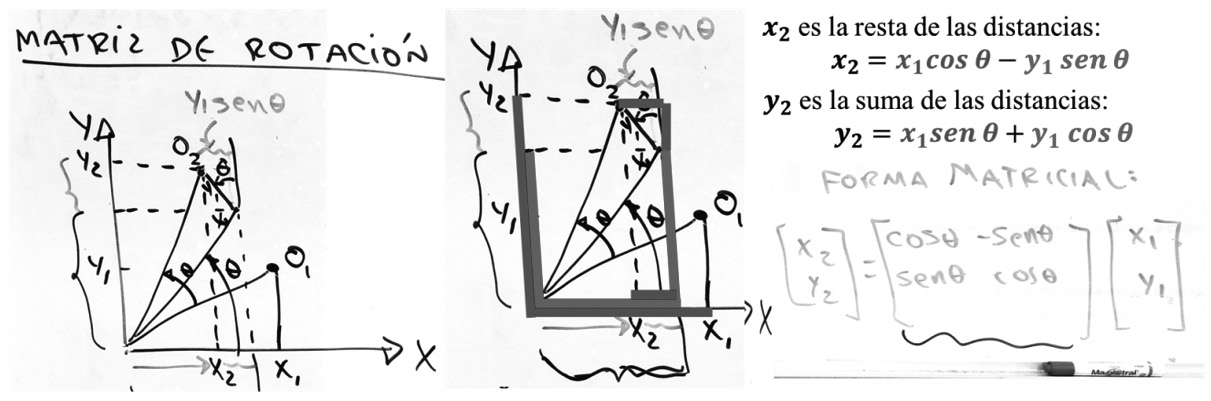 MATRIZ DE ROTACIÓN
y₁senθ
Y
O₂
y₂
θ
y₁
θ
θ
O₁
x₂
x₁
X
y₁senθ
Y
O₂
y₂
θ
y₁
θ
θ
O₁
x₂
x₁
X
x₂ es la resta de las distancias:
x₂ = x₁cos θ − y₁ sen θ
y₂ es la suma de las distancias:
y₂ = x₁sen θ + y₁ cos θ
FORMA MATRICIAL:
[x₂] = [cosθ -senθ] [x₁]
[y₂] [senθ cosθ] [y₁]
Magistral